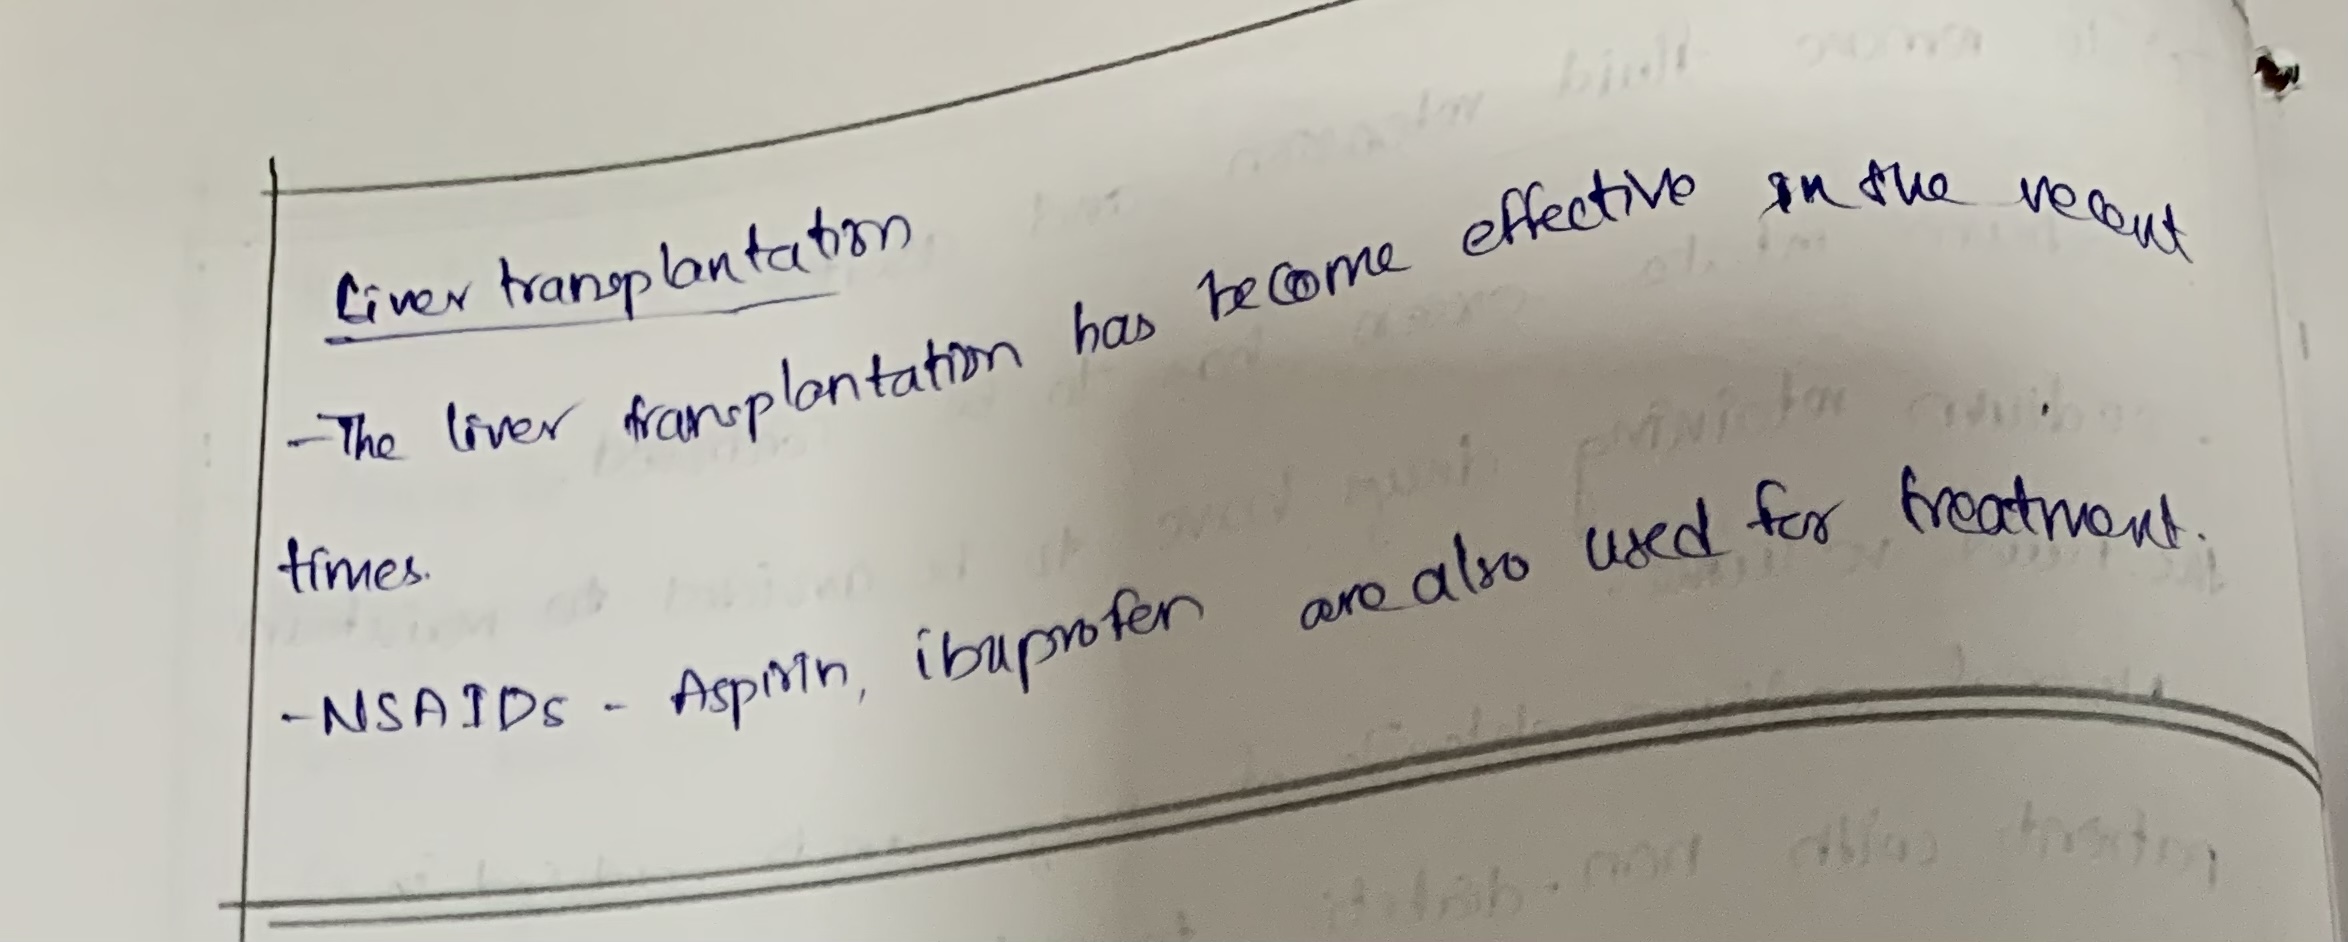 Liver transplantation
- The liver transplantation has become effective in the recent
times.
- NSAIDs - Aspirin, ibuprofen are also used for treatment.